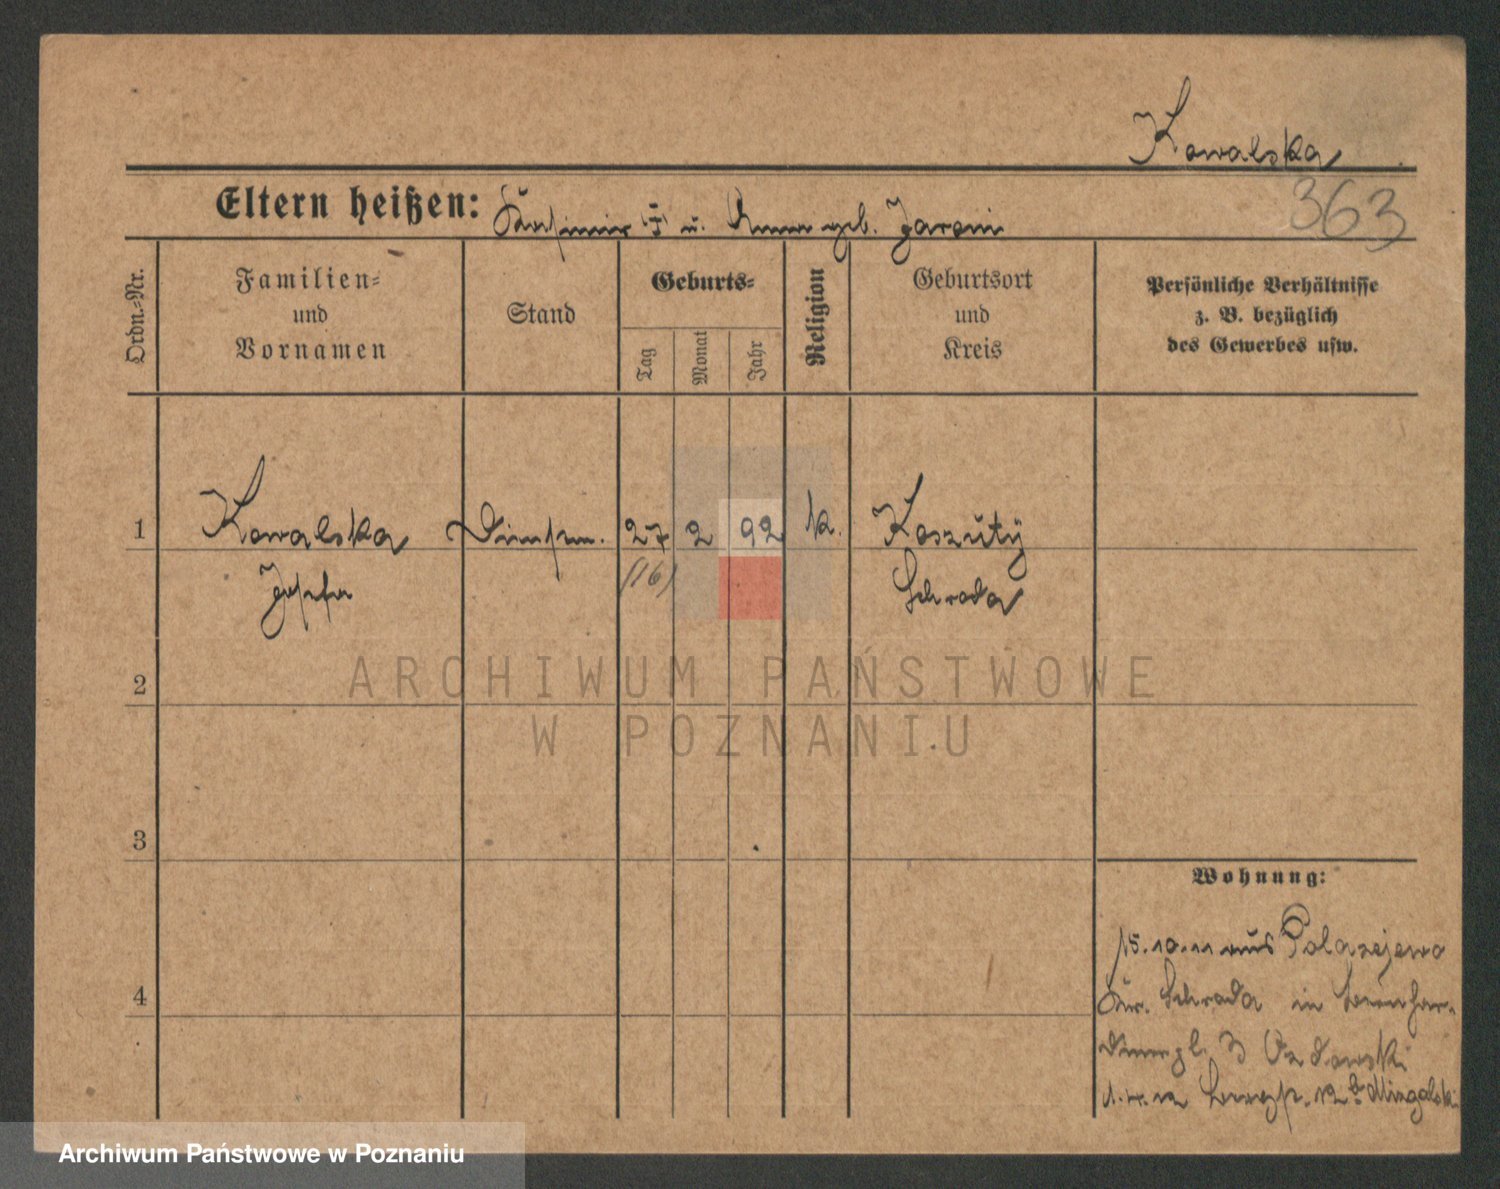 Kowalska
363
Eltern heißen: Kasimir † u. Anna geb. Jaroni
Ordn.-Nr.
Familien-
und
Vornamen
Stand
Geburts-
Tag
Monat
Jahr
Religion
Geburtsort
und
Kreis
Persönliche Verhältnisse
z. B. bezüglich
des Gewerbes usw.
1 Kowalska Dienstm. 27 2 92 k. Koszuty
Josefa (16) Schroda
2
3
4
Wohnung:
15.10.11 aus Polazejewo
Kr. Schroda in Bernhar-
dinerpl. 3
1.4.12
ARCHIWUM PAŃSTWOWE
W POZNANIU
Archiwum Państwowe w Poznaniu